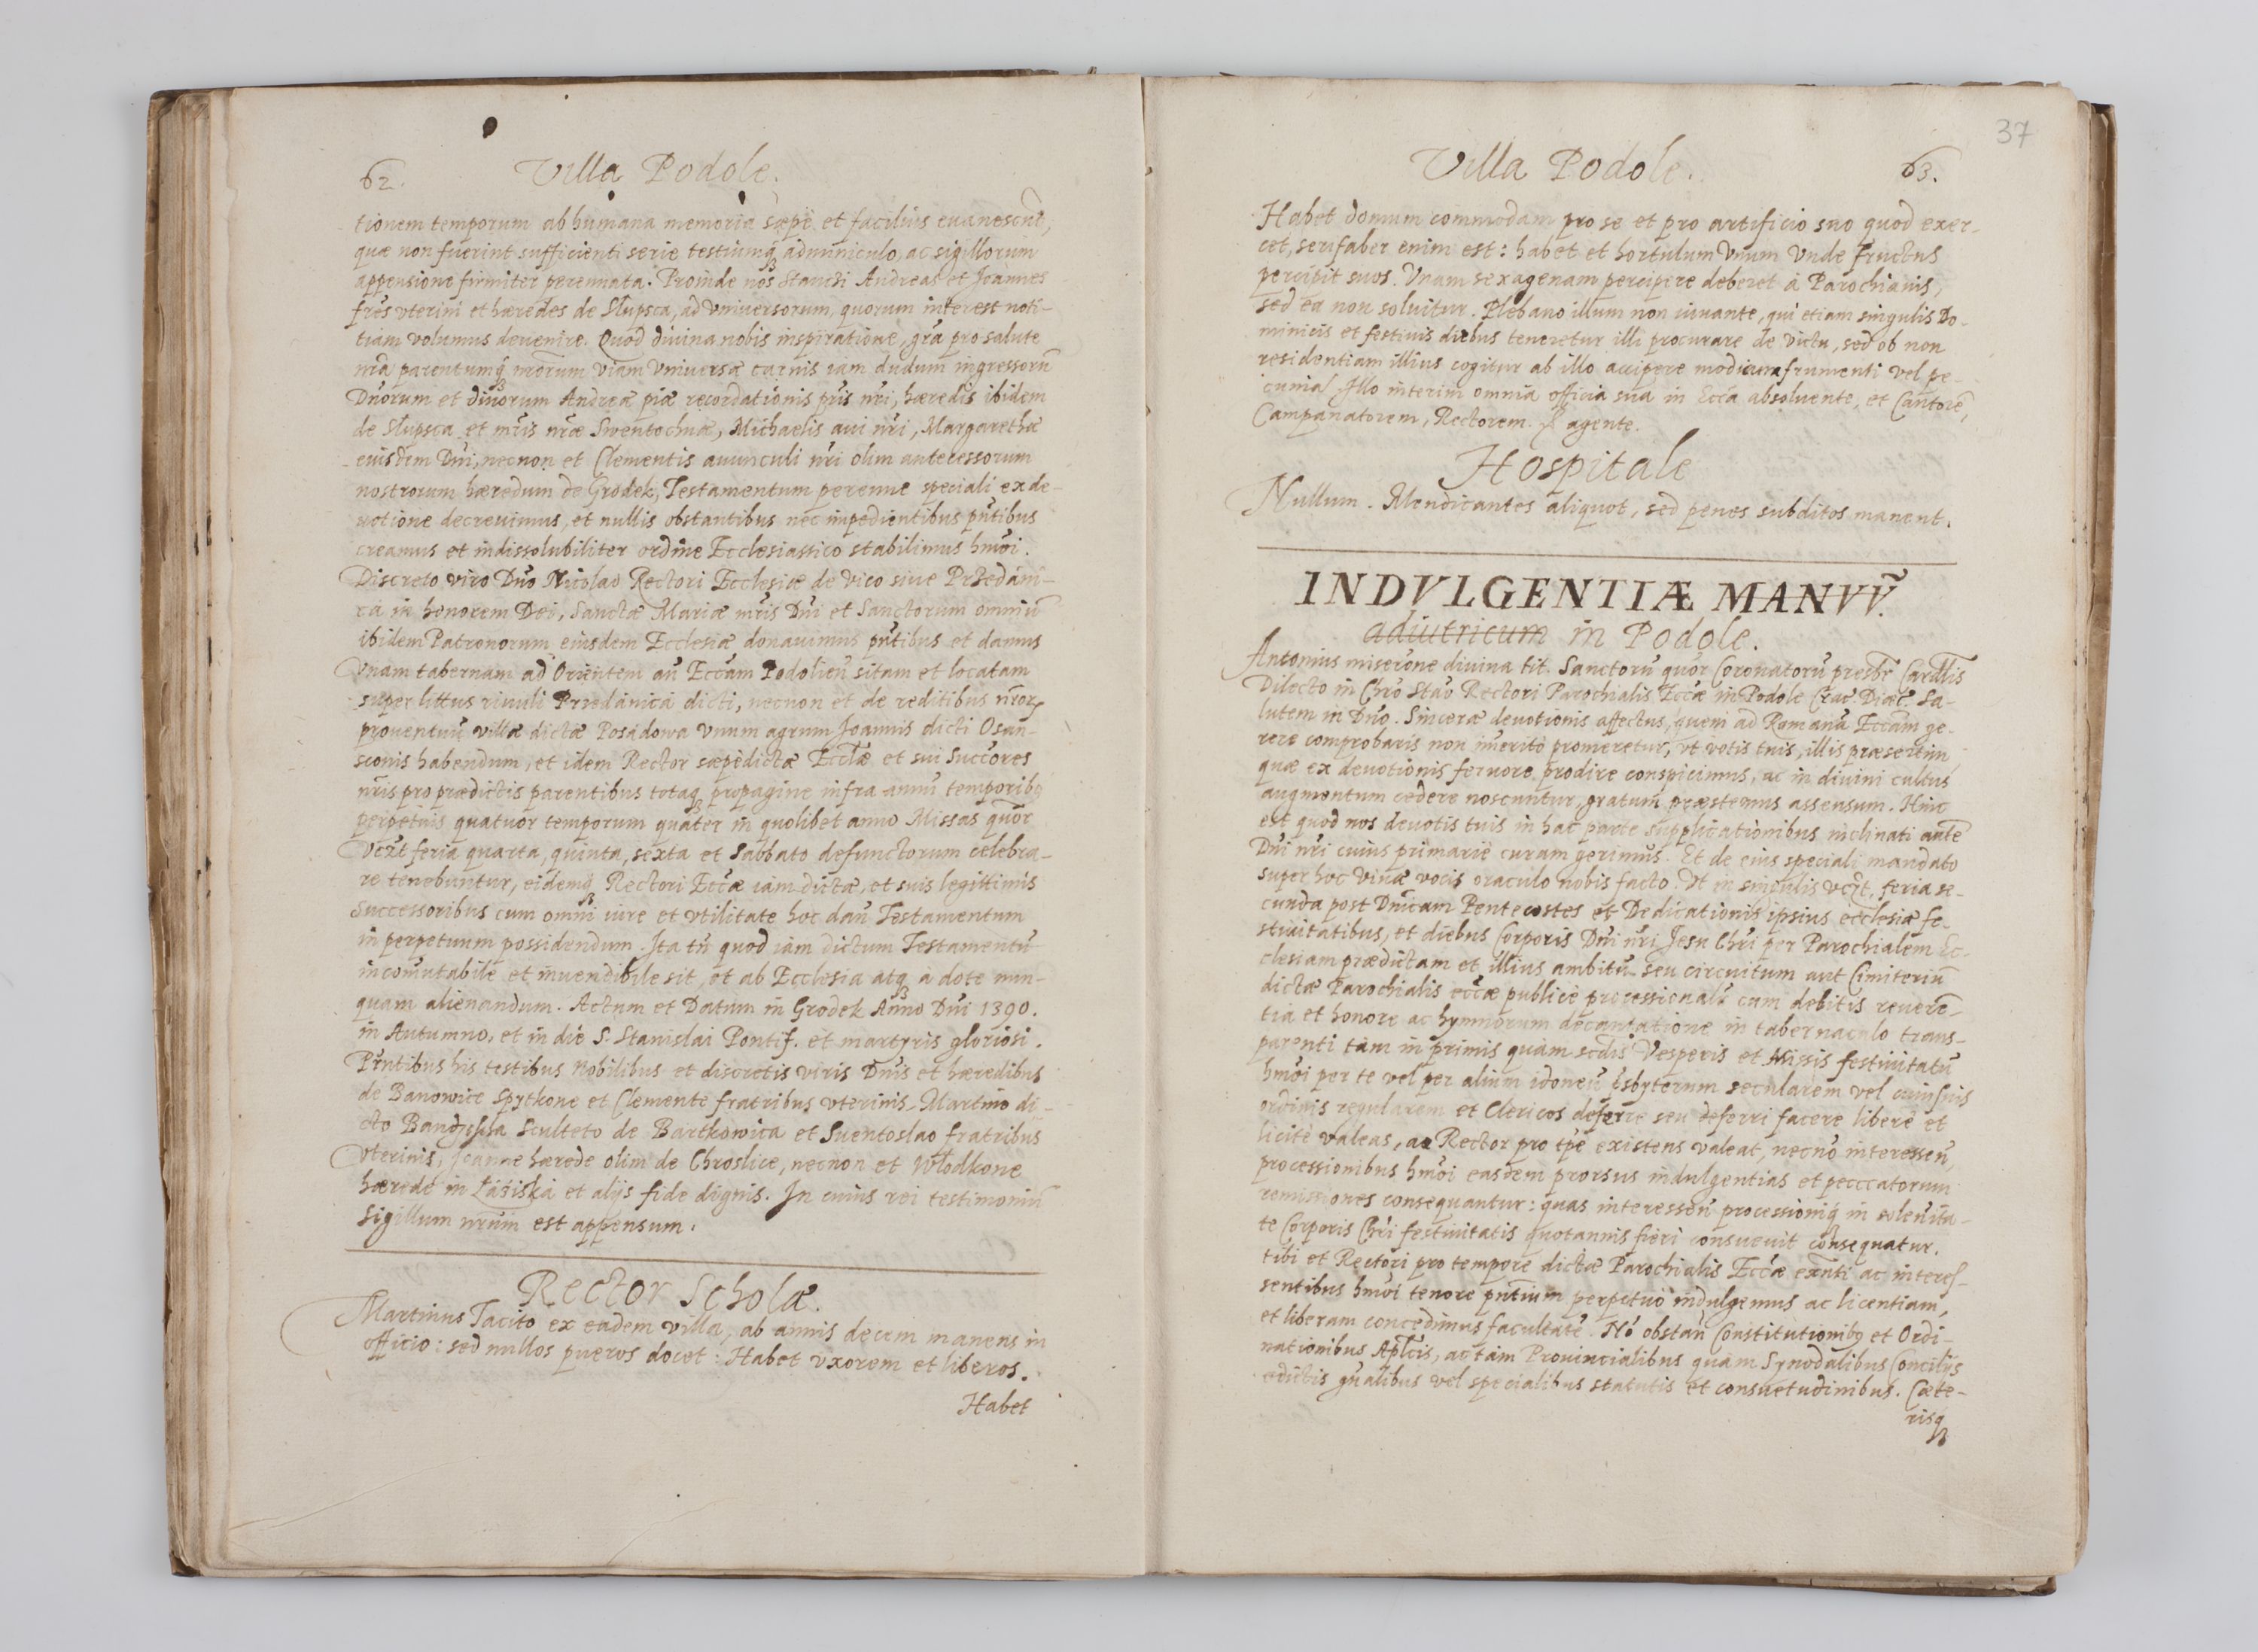 62. Villa Podole.
tionem temporum ab humana memoria sæpè et facilius euanescūt,
quæ non fuerint sufficienti serie testiumq́ adminiculo, ac sigillorum
appensione firmiter perennata. Proinde nos Andreas et Joannes
fr̃es vterini et hæredes de Słupsca, ad vniuersorum, quorum interest noti-
tiam volumus deuenire. Quod diuina nobis inspiratione, gr̃a pro salute
nr̃a parentumq́ nr̃orum viam vniuersæ carnis iam dudum ingressorū
Dn̄orum et diuorum Andreæ piæ recordationis pr̃is nr̃i, hæredis ibidem
de Słupsca et mr̃is nr̃æ Swentochnæ, Michaelis aui nr̃i, Margarethæ
eiusdem Dn̄i, necnon et Clementis auunculi nr̃i olim antecessorum
nostrorum hæredum de Grodek, Testamentum perenne speciali ex de-
uotione decreuimus, et nullis obstantibus nec impedientibus pn̄tibus
creamus et indissolubiliter ordine Ecclesiastico stabilimus hm̄oi.
Discreto viro Dn̄o Nicolao Rectori Ecclesiæ de Vico siue Przedáni-
cá in honorem Dei, Sanctæ Mariæ mr̃is Dn̄i et Sanctorum omniū
ibidem Patronorum eiusdem Ecclesiæ donauimus pn̄tibus et damus
vnam tabernam ad Orientem an̄ Ecc̃am Podolien̄ sitam et locatam
super littus riuuli Przedánicá dicti, necnon et de reditibus nr̃or
prouentuū villæ dictæ Posádowa vnum agrum Joannis dicti Osan-
sconis habendum, et idem Rector sæpèdictæ Eccl̃æ et sui Succ̃ores
nr̃is pro prædictis parentibus totaq́ propagine infra annū temporibq
perpetuis quatuor temporum quater in quolibet anno Missas quōr
vcz̃t feria quarta, quinta, sexta et Sabbato defunctorum celebra-
re tenebuntur, eidemq́ Rectori Ecc̃æ iam dictæ, et suis legittimis
Successoribus cum omni iure et vtilitate hoc dan̄ Testamentum
in perpetuum possidendum. Ita tn̄ quod iam dictum Testamentū
incom̄utabile et inuendibile sit, et ab Ecclesia atq́ à dote nun-
quam alienandum. Actum et Datum in Grodek Anno Dn̄i 1390.
in Autumno, et in die S. Stanislai Pontif. et martyris gloriosi.
Pn̄tibus his testibus Nobilibus et discretis viris Dn̄is et hæredibus
de Banowice Spytkone et Clemente fratribus vterinis Martino di-
cto Sculteto de Bartkowica et Suentoslao fratribus
vterinis, Joanne hærede olim de Chroslice, necnon et Włodkone
hærede in Łáziská et alijs fide dignis. In cuius rei testimoniū
Sigillum nr̃um est appensum.
Rector Scholæ.
Martinus Tacito ex eadem villa, ab annis decem manens in
officio: sed nullos pueros docet: Habet vxorem et liberos.
Habet
37
Villa Podole. 63.
Habet domum commodam pro se et pro artificio suo quod exer-
cet, serifaber enim est: habet et hortulum vnum vnde fructus
percipit suos. Vnam sexagenam percipere deberet à Parochianis,
sed ea non soluitur. Plebano illum non iuuante, qui etiam singulis Do-
minicis et festiuis diebus teneretur illi procurare de victu, sed ob non
residentiam illius cogitur ab illo accipere modicum frumenti vel pe-
cuniæ. Illo interim omnia officia sua in Ecc̃a absoluente, et Cantorē,
Campanatorem, Rectorem agente.
Hospitale
Nullum. Mendicantes aliquot, sed penes subditos manent.
INDVLGENTIÆ MANVṼ.
adiutricum in Podole.
Antonius miser̃one diuina tit. Sanctorū quōr Coronatorū presb̃r Card̃lis
Dilecto in Chr̃o Stāo Rectori Parochialis Ecc̃æ in Podole Crac̃. Diæc̃. Sa-
lutem in Dn̄o. Sinceræ deuotionis affectus, quem ad Romanā Ecc̃am ge-
rere comprobaris non im̄eritò promeretur, vt votis tuis, illis præsertim,
quæ ex deuotionis feruore prodire conspicimus, ac in diuini cultus
augmentum cedere noscuntur, gratum præstemus assensum. Hinc
est quod nos deuotis tuis in hac parte supplicationibus inclinati aut̃e
Dn̄i nr̃i cuius primarie curam gerimus. Et de eius speciali mandato
super hoc viuæ vocis oraculo nobis facto. Vt in singulis vcz̃t, feria se-
cunda post Dn̄icam Pentecostes et Dedicationis ipsius ecclesiæ fe-
stiuitatibus, et diebus Corporis Dn̄i nr̃i Jesu Chr̃i per Parochialem Ec-
clesiam prædictam et illius ambitū seu circuitum aut Cimiteriū
dictæ Parochialis ecc̃æ publicè processionalr̃ cum debitis reuerē-
tia et honore ac hymnorum decantatione in tabernaculo trans-
parenti tàm in primis quàm sec̃dis Vesperis et Missis festiuitatū
hm̄oi per te vel per alium idoneū p̃sbyterum secularem vel cuiusuis
ordinis regularem et Clericos deferre seu deferri facere liberè et
licitè valeas, ac Rector pro tp̃e existens valeat, necnō interessen̄,
processionibus hm̄oi easdem prorsus indulgentias et pecccatorum
remissiones consequantur: quas interessen̄ processioniq́ in solen̄ita-
te Corporis Chr̃i festiuitatis quotannis fieri consueuit consequatur.
tibi et Rectori pro tempore dictæ Parochialis Ecc̃æ exñti ac interes-
sentibus hm̄oi tenore pn̄tium perpetuò indulgemus ac licentiam,
et liberam concedimus facultatē. Nō obstan̄ Constitutionibq et Ordi-
nationibus Apl̃cis, ac tàm Prouincialibus quàm Synodalibus Concilijs
edictis gn̄alibus vel specialibus statutis et consuetudinibus. Cæte-
risq́